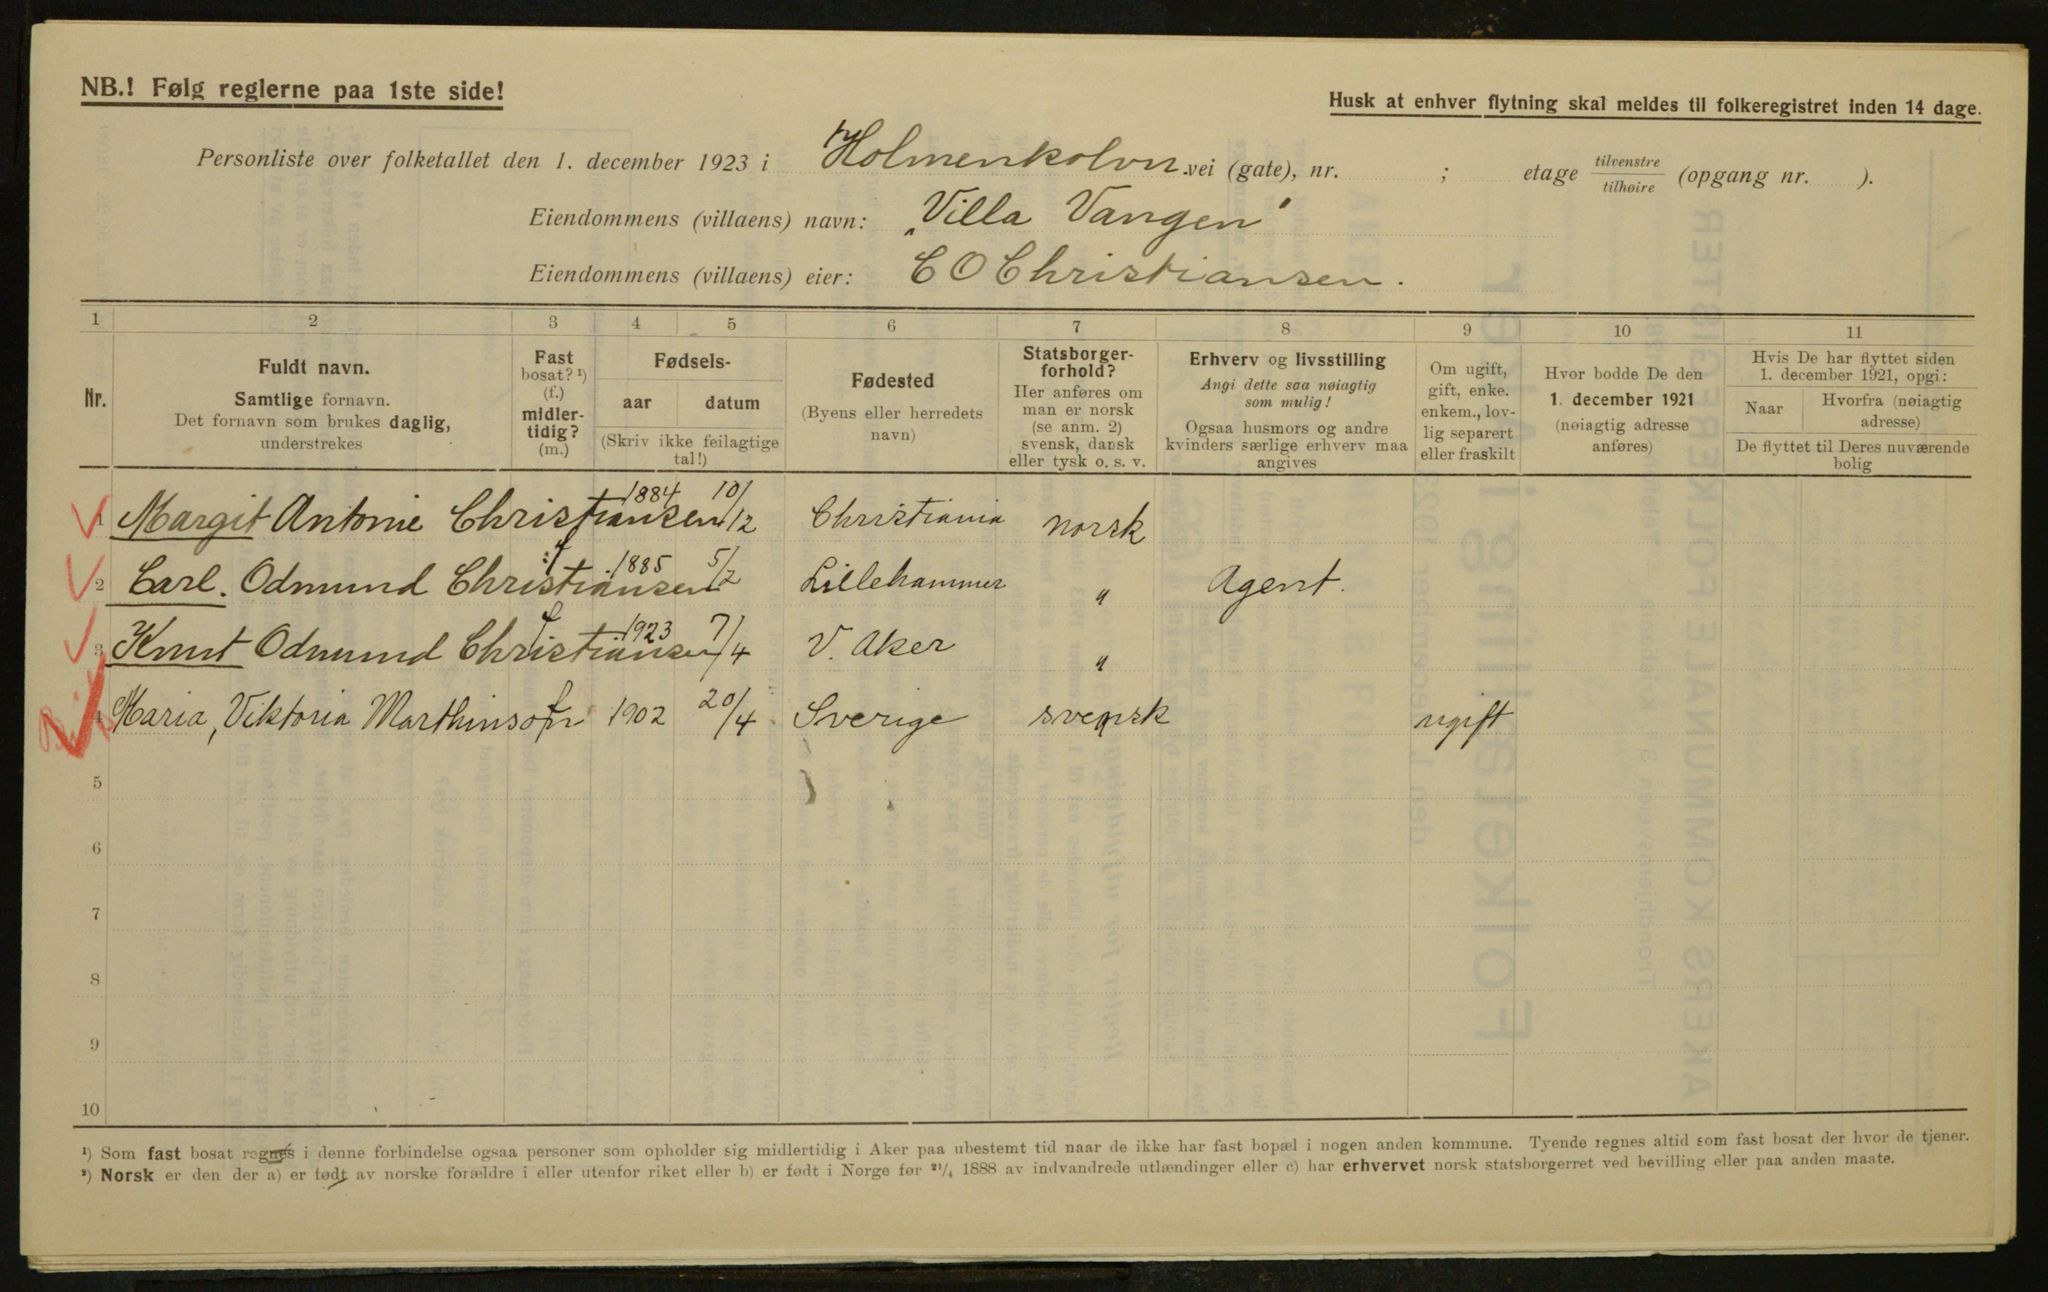 NB.! Følg reglerne paa 1ste side!
Husk at enhver flytning skal meldes til folkeregistret inden 14 dage.
Personliste over folketallet den 1. december 1923 i Holmenkolvn. vei (gate), nr. ; etage tilvenstre tilhøire (opgang nr. ).
Eiendommens (villaens) navn: „Villa Vangen"
Eiendommens (villaens) eier: C O Christiansen.
1 2 3 4 5 6 7 8 9 10 11
Nr.
Fuldt navn.
Samtlige fornavn.
Det fornavn som brukes daglig,
understrekes
Fast
bosat? ¹)
(f.)
midler-
tidig?
(m.)
Fødsels-
aar datum
(Skriv ikke feilagtige
tal!)
Fødested
(Byens eller herredets
navn)
Statsborger-
forhold?
Her anføres om
man er norsk
(se anm. 2)
svensk, dansk
eller tysk o. s. v.
Erhverv og livsstilling
Angi dette saa nøiagtig
som mulig!
Ogsaa husmors og andre
kvinders særlige erhverv maa
angives
Om ugift,
gift, enke.
enkem., lov-
lig separert
eller fraskilt
Hvor bodde De den
1. december 1921
(nøiagtig adresse
anføres)
Hvis De har flyttet siden
1. december 1921, opgi:
Naar
Hvorfra (nøiagtig
adresse)
De flyttet til Deres nuværende
bolig
1 Margit Antonie Christiansen 1884 10/12 Christiania norsk
2 Carl. Odmund Christiansen f 1885 5/2 Lillehammer „ Agent.
3 Knut Odmund Christiansen f 1923 7/4 V. Aker „
4 Maria, Viktoria Marthinson f 1902 20/4 Sverige svensk ugift
5
6
7
8
9
10
¹) Som fast bosat regnes i denne forbindelse ogsaa personer som opholder sig midlertidig i Aker paa ubestemt tid naar de ikke har fast bopæl i nogen anden kommune. Tyende regnes altid som fast bosat der hvor de tjener.
²) Norsk er den der a) er født av norske forældre i eller utenfor riket eller b) er født i Norge før ²¹/₄ 1888 av indvandrede utlændinger eller c) har erhvervet norsk statsborgerret ved bevilling eller paa anden maate.